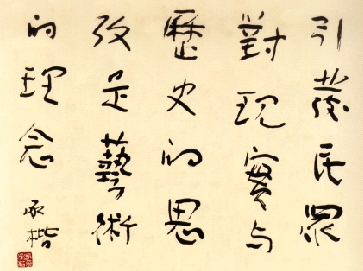 引發民眾
對現實与
歷史的思
攷是藝術
的理念
承楷